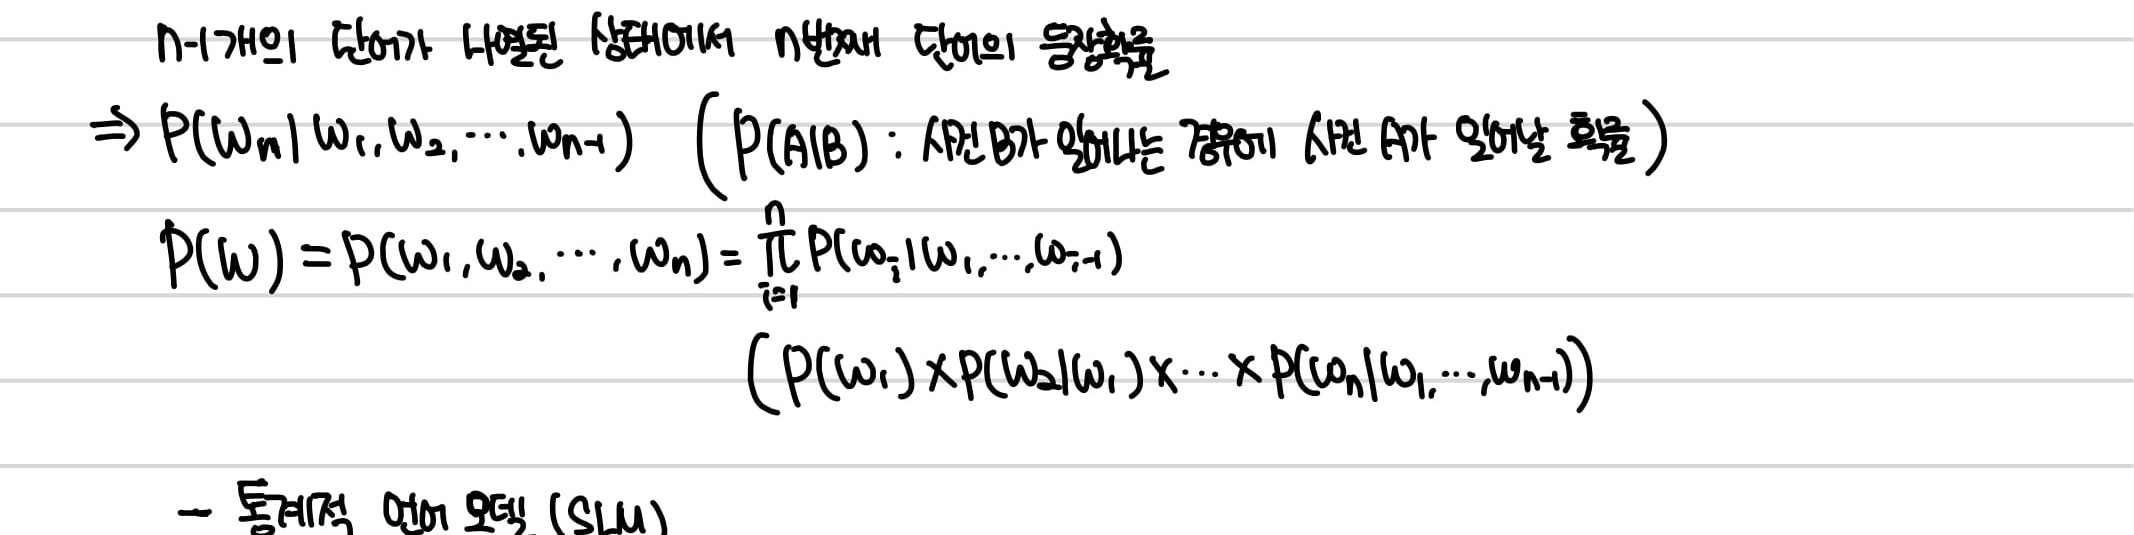 n-1개의 단어가 나열된 상태에서 n번째 단어의 등장확률
⇒ P(wn|w1, w2, ⋯, wn-1) (P(A|B) : 사건 B가 일어나는 경우에 사건 A가 일어날 확률)
P(W) = P(w1, w2, ⋯, wn) = ∏_{i=1}^{n} P(wi|w1, ⋯, wi-1)
(P(w1) × P(w2|w1) × ⋯ × P(wn|w1, ⋯, wn-1))
- 통계적 언어 모델 (SLM)